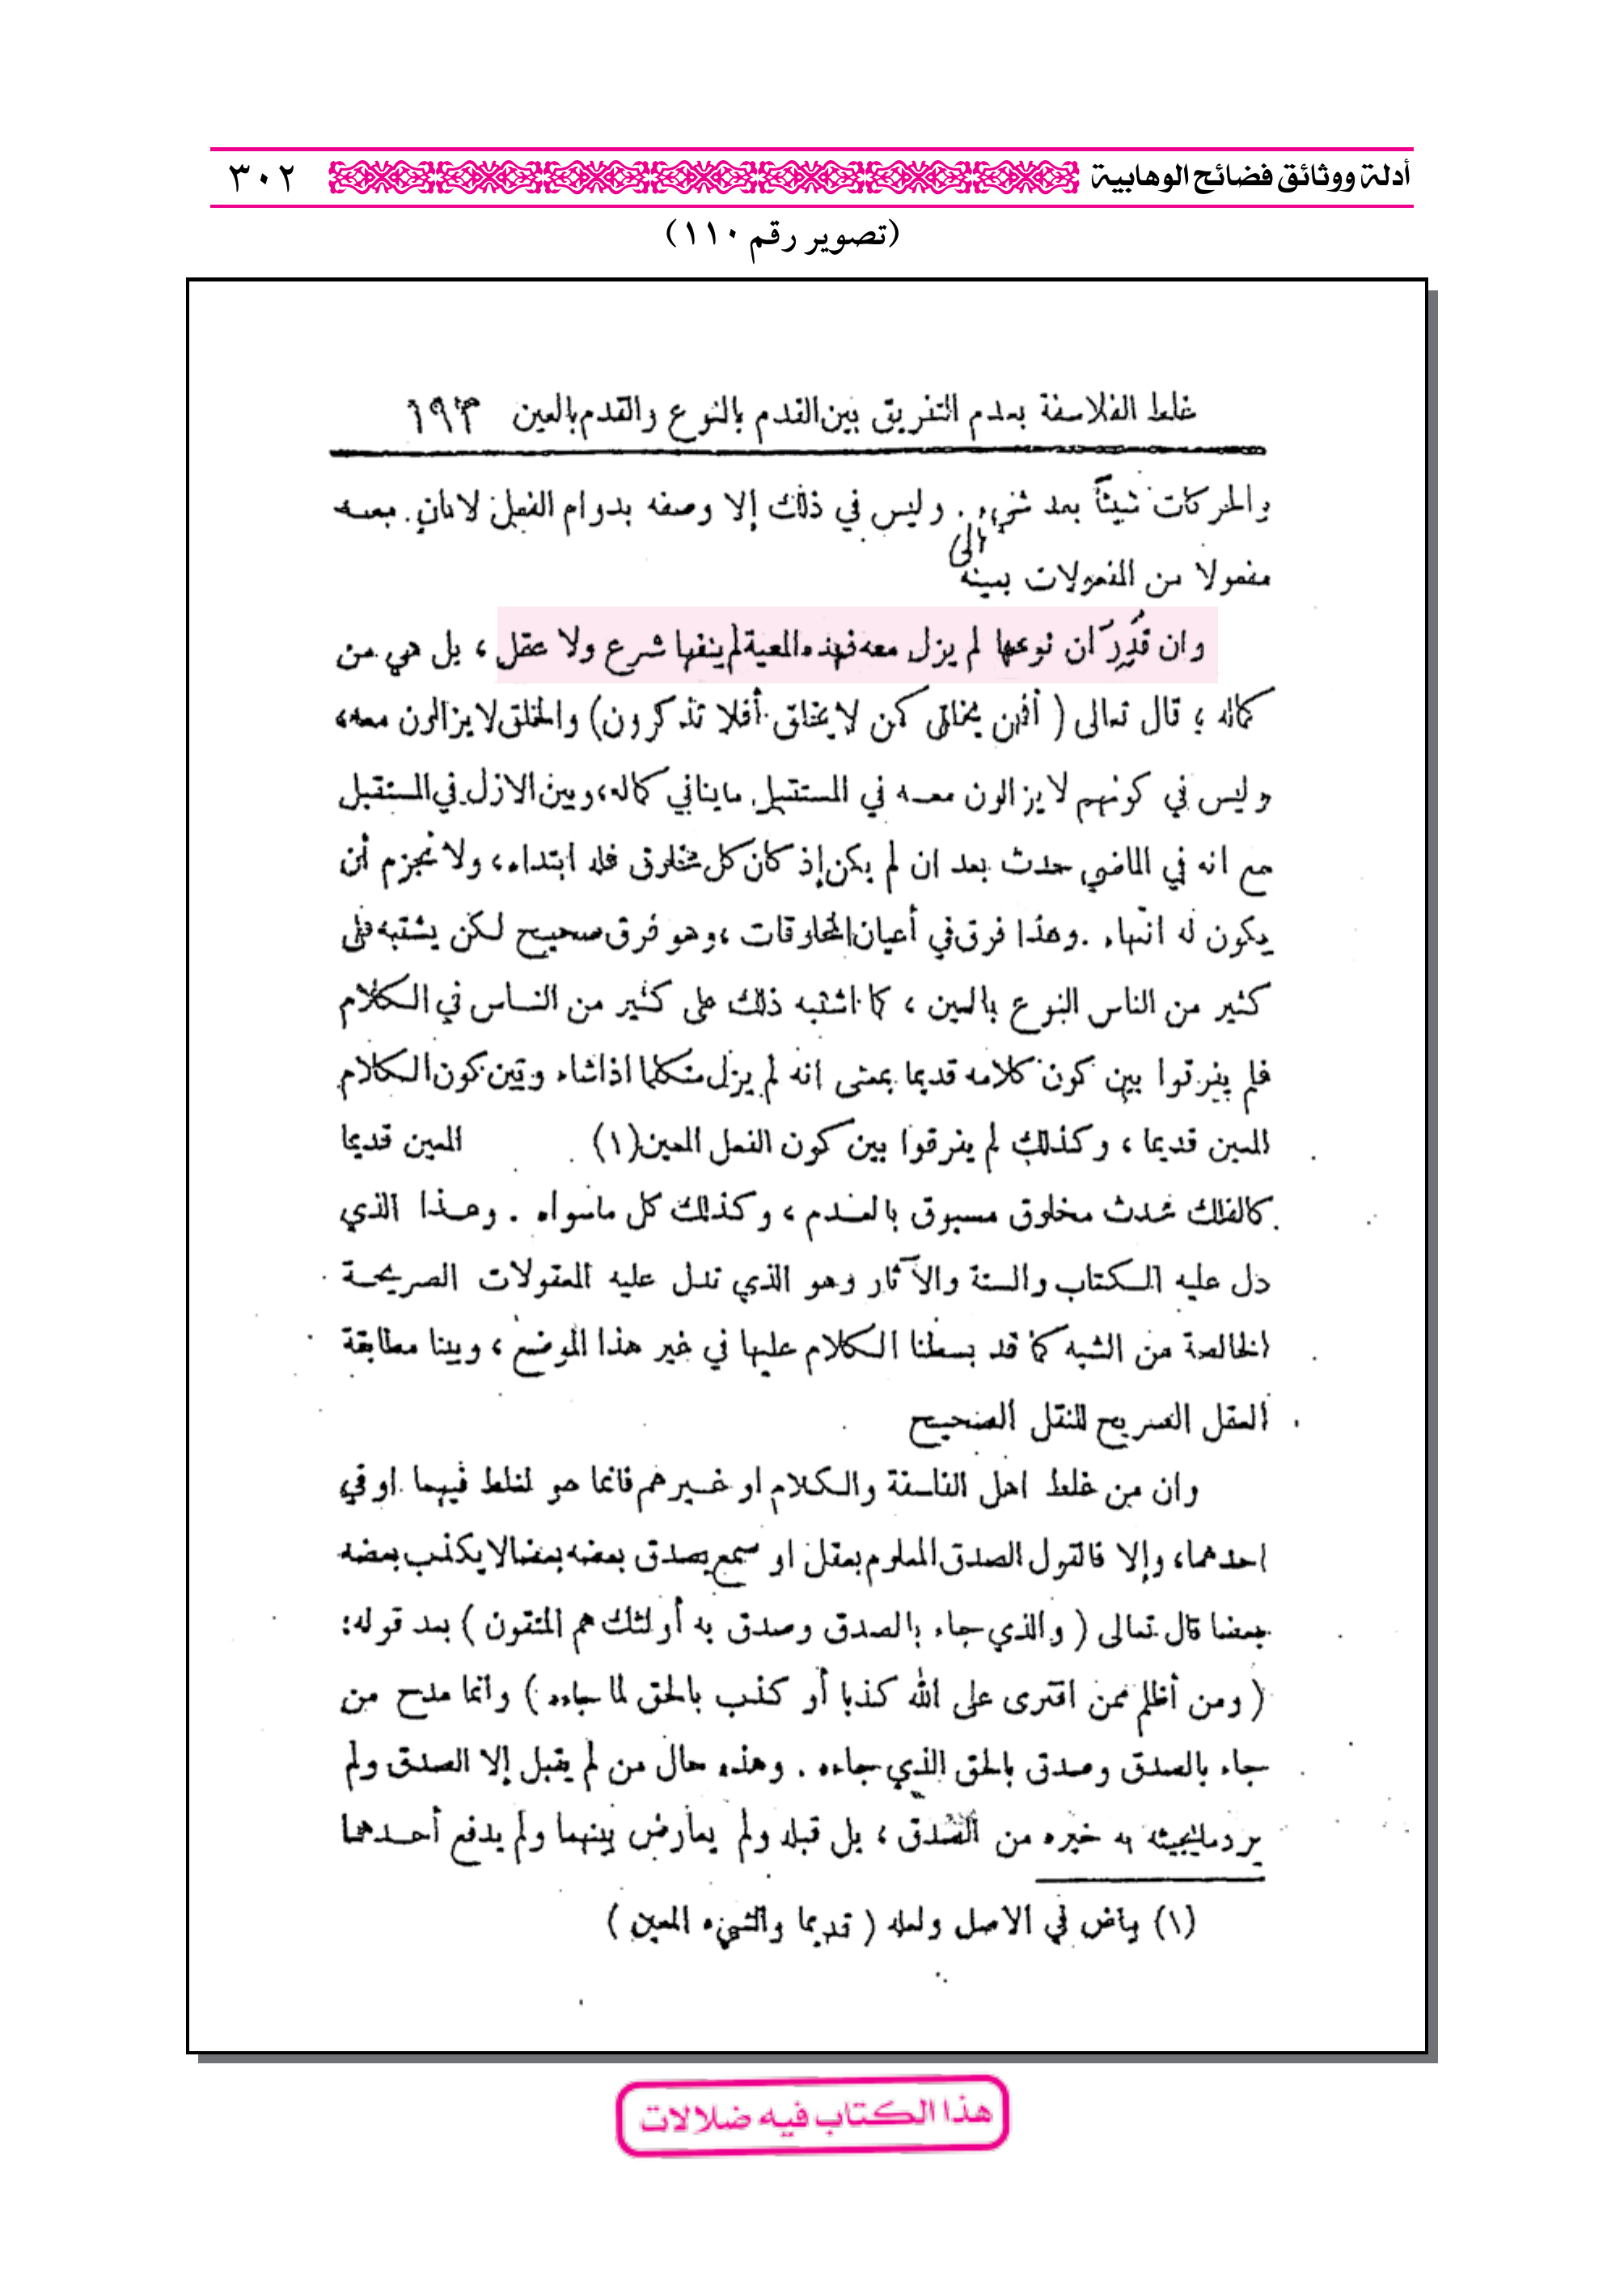 أدلة ووثائق فضائح الوهابية ٣٠٢
(تصوير رقم ١١٠)
غلط الفلاسفة بعدم التفريق بين القدم بالنوع والقدم بالعين ١٩٣
والحركات شيئاً بعد شيء. وليس في ذلك إلا وصفه بدوام الفعل لا بان معه
مفعولا من المفعولات بعينه
وان قُدِّرَ أن نوعها لم يزل معه فهذه المعية لم ينفها شرع ولا عقل ، بل هي من
كماله ، قال تعالى ( أفمن يخلق كمن لا يخلق أفلا تذكرون) والخلق لا يزالون معه،
وليس في كونهم لا يزالون معه في المستقبل ما ينافي كماله، وبين الازل في المستقبل
مع انه في الماضي حدث بعد ان لم يكن إذ كان كل مخلوق فله ابتداء، ولا نجزم أن
يكون له انتهاء. وهذا فرق في أعيان المخلوقات ، وهو فرق صحيح لكن يشتبه على
كثير من الناس النوع بالعين ، كما اشتبه ذلك على كثير من الناس في الكلام
فلم يفرقوا بين كون كلامه قديما بمعنى انه لم يزل متكلما اذا شاء وبين كون الكلام
المعين قديما ، وكذلك لم يفرقوا بين كون الفعل المعين(١) المعين قديما
كالفلك محدث مخلوق مسبوق بالعدم ، وكذلك كل ما سواه . وهذا الذي
دل عليه الكتاب والسنة والآثار وهو الذي تدل عليه المعقولات الصريحة
الخالصة من الشبه كما قد بسطنا الكلام عليها في غير هذا الموضع ، وبينا مطابقة
العقل الصريح للنقل الصحيح
وان من غلط اهل الفلسفة والكلام او غيرهم فانما هو لغلط فيهما او في
احدهما، وإلا فالقول الصدق المعلوم بعقل او سمع يصدق بعضه بعضا لا يكذب بعضه
بعضا قال تعالى ( والذي جاء بالصدق وصدق به أولئك هم المتقون ) بعد قوله:
( ومن أظلم ممن افترى على الله كذبا أو كذب بالحق لما جاءه ) وانما مدح من
جاء بالصدق وصدق بالحق الذي جاءه . وهذه حال من لم يقبل إلا الصدق ولم
يرد ما يجيئه به غيره من الصدق ، بل قبله ولم يعارض بينهما ولم يدفع أحدهما
(١) بياض في الاصل ولعله ( قديما والشيء المعين )
هذا الكتاب فيه ضلالات